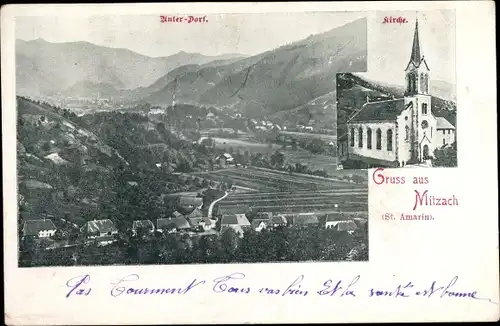 Unter-Dorf.
Kirche.
Gruss aus
Mitzach
(St. Amarin).
Pas Tourment Tous vas bien Et la santé est bonne